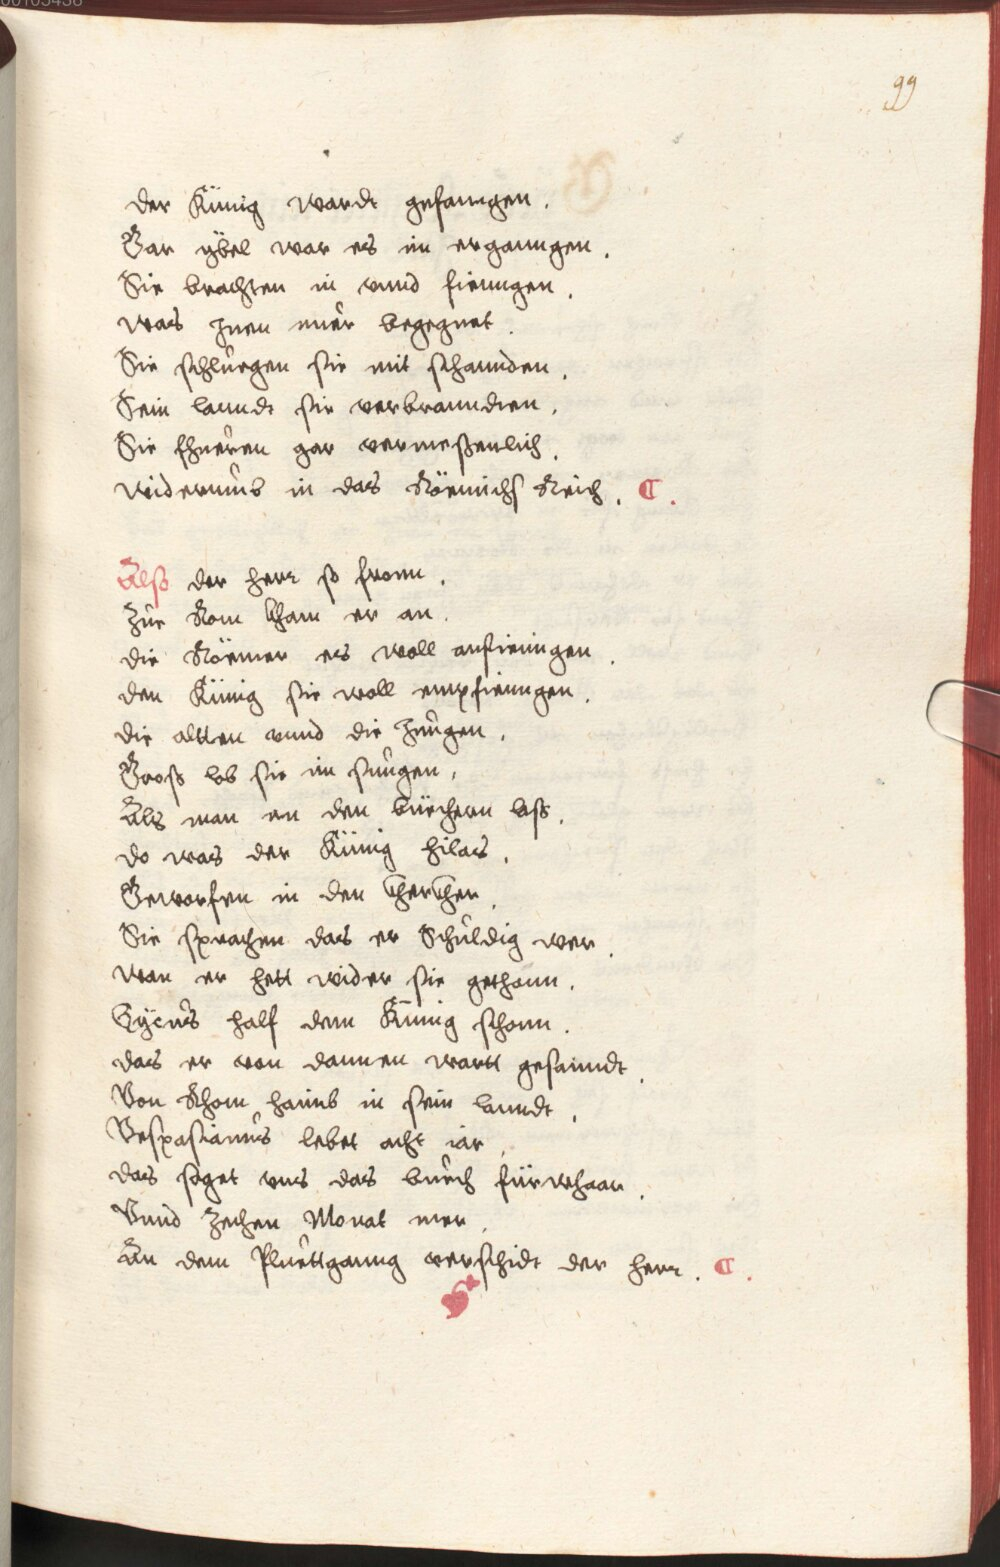 99
der Künig wardt gefanngen.
Gar ybel war es im erganngen.
Sie brachten in vnnd fienngen.
was Inen nuer begegnet.
Sie schluegen sie mit schannden.
Sein lanndt sie verbranndten.
Sie fhueren gar vermeßenlich.
widerumb in das Römichs Reich.
Alß der herr so from.
Zue Rom kham er an.
die Römer es woll anfienngen.
den Künig sie woll empfienngen.
die altten vnnd die Jungen.
Groß lob sie im sungen.
Als man an den büechern laß.
do was der Künig hilas.
Geworfen in den kherkher.
Sie sprachen das er Schuldig wer.
wan er hett wider sie gethann.
Tÿcus half dem Künig schonn.
das er von dannen wartt gesanndt.
Von Rhom haimb in sein lanndt.
Vespasianus lebet acht iar.
das saget vns das buech fürwhaar.
Vnnd Zechen Monat mer.
An dem Pluettganng verschidt der herr.